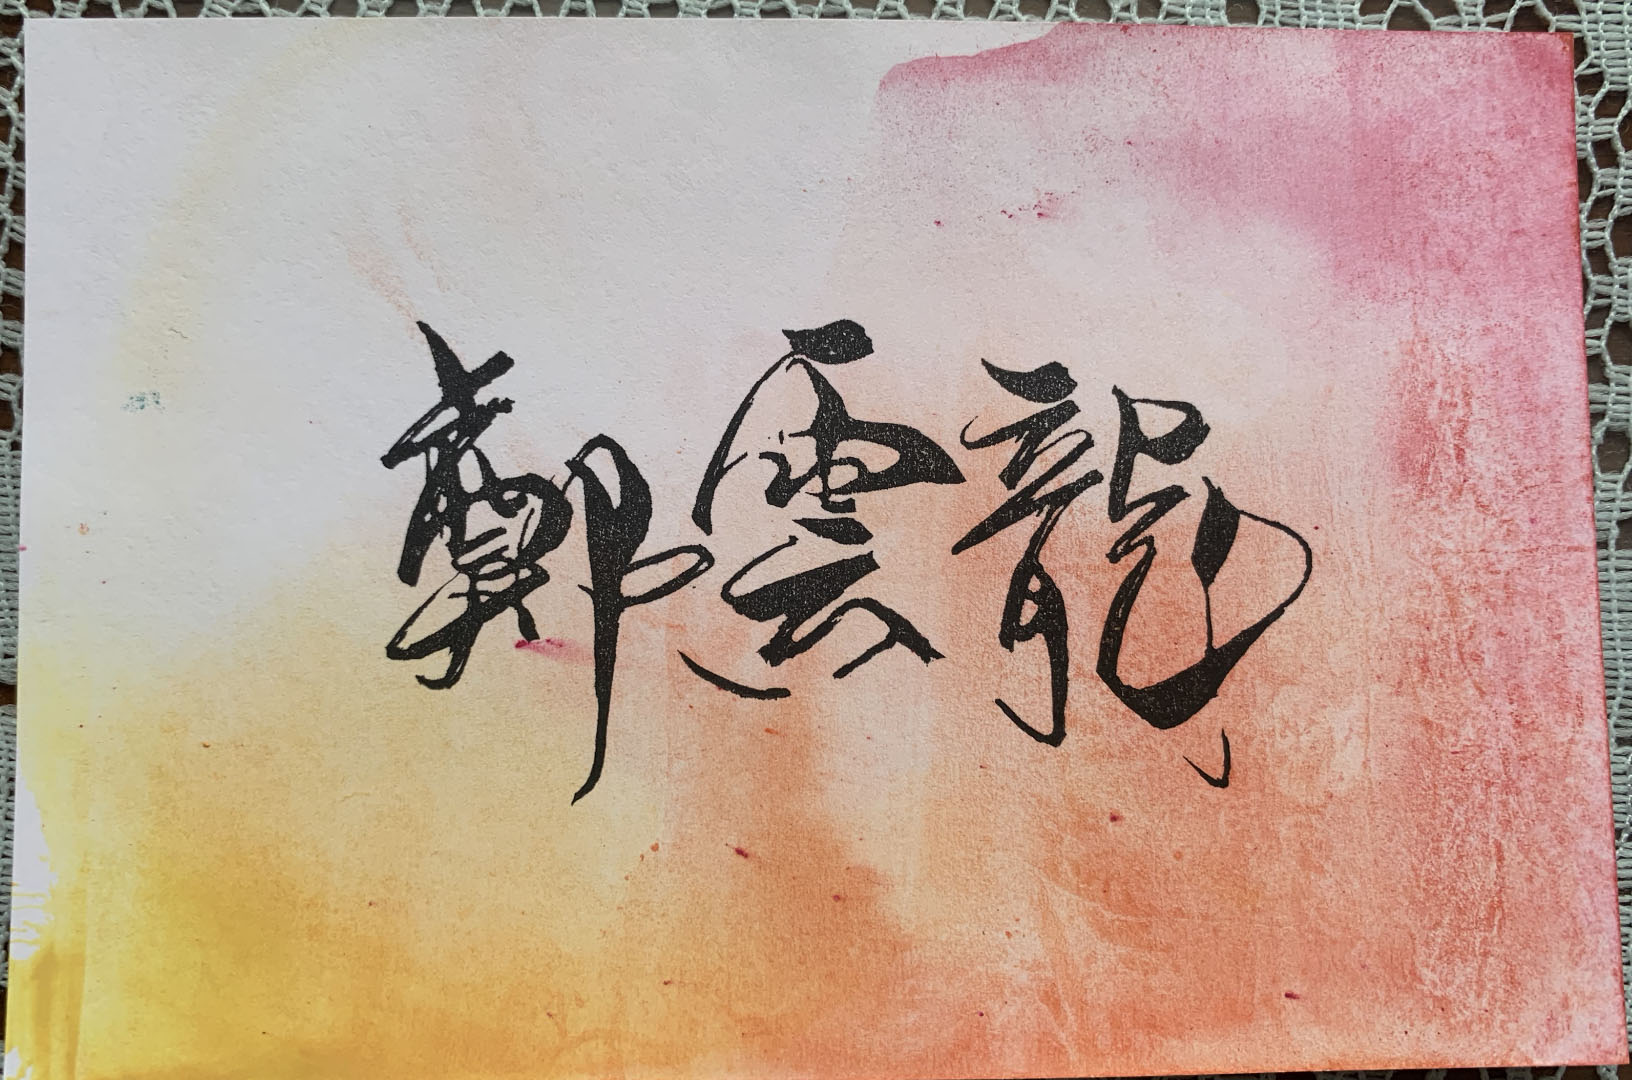 鄭雲龍